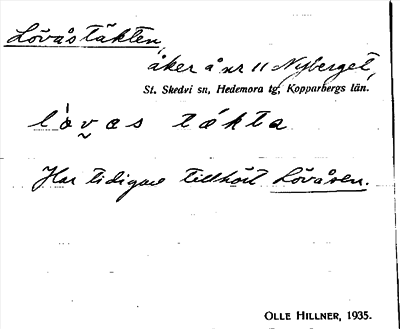 Lövåstäkten,
åker å nr 11 Nyberget,
St. Skedvi sn, Hedemora tg, Kopparbergs län.
lö̀vas tákta
Har tidigare tillhört Lövåsen.
OLLE HILLNER, 1935.